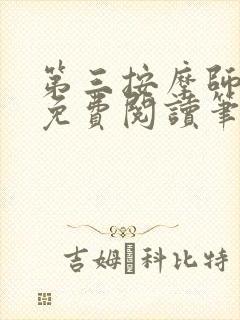 第三按摩師
免費閱讀筆
吉姆 科比特